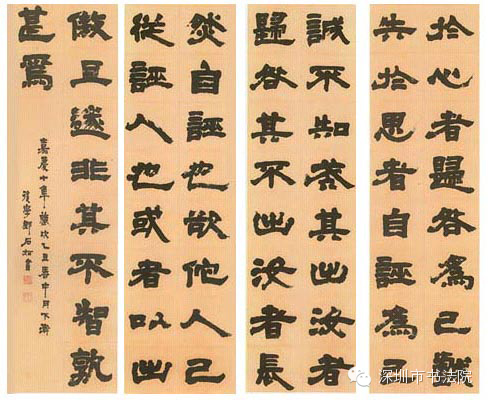 於心者歸咎為己戲
失於思者自誣為己
誠不知戒其出汝者
歸咎其不出汝者長
然自誣也欲他人己
從誣人也或者以出
傲且遂非其不智孰
甚焉
嘉慶十年歲次乙丑春中月下澣
後學鄧石如書
深圳市书法院